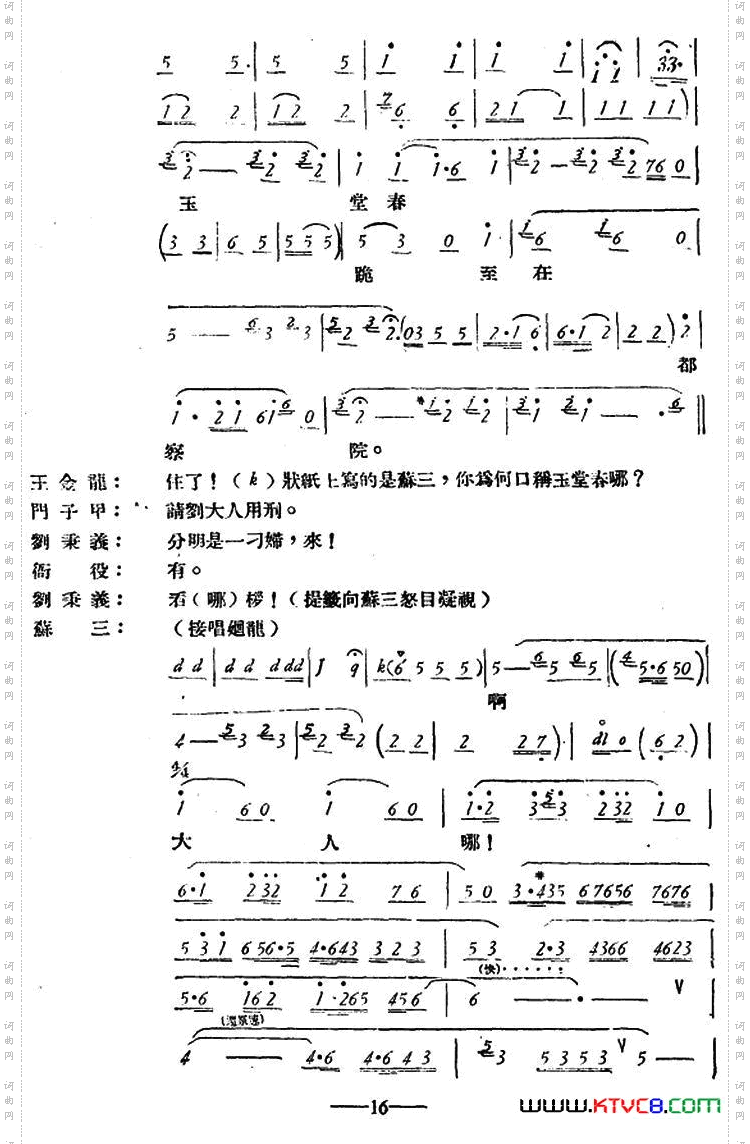 5 5. | 5 5 | i i | i i | i i | 33.
1 2 2 | 1 2 2 | 6 6 | 2 1 1 | 1 1 1 1 )
玉 堂 春
( 3 3 | 6 5 | 5 5 5 ) | 5 3 0 i | 6 6 0 |
跪 至 在
5 —— 3 3 | 2 2. ( 03 5 5 | 2·1 6 | 6·1 2 | 2 2 ) 2 |
都
察 院。
王金龍： 住了！（k）狀紙上寫的是蘇三，你爲何口稱玉堂春哪？
門子甲： 請劉大人用刑。
劉秉義： 分明是一刁婦，來！
衙役： 有。
劉秉義： 看（哪）桚！（提籤向蘇三怒目凝視）
蘇三： （接唱廻龍）
d d | d d d dd | J q | k(6 5 5 5 ) | 5 — 5 5 | ( 5·6 50 )
啊
4 — 3 3 | 2 2 ( 2 2 | 2 2 7 ) · | dl o ( 6 2 ) |
i 60 i 60 | i·2 3 3 2 32 i 0
大 人 哪！
6·i 2 32 i 2 7 6 | 5 0 3·435 67656 7676 |
5 3 i 656·5 4·643 3 2 3 | 5 3 2·3 4366 4623 |
(快)······
5·6 16 2 1·265 456 | 6 —— · — V
(還原速)
4 —— 4·6 4·6 4 3 | 3 5 3 5 3 V 5 — |
—16—
WWW.KTVC8.COM
词曲网